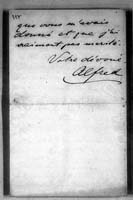 que vous m'avais
donné et que j'ai
vraiment pas mérité.
Votre dévoué
Alfred